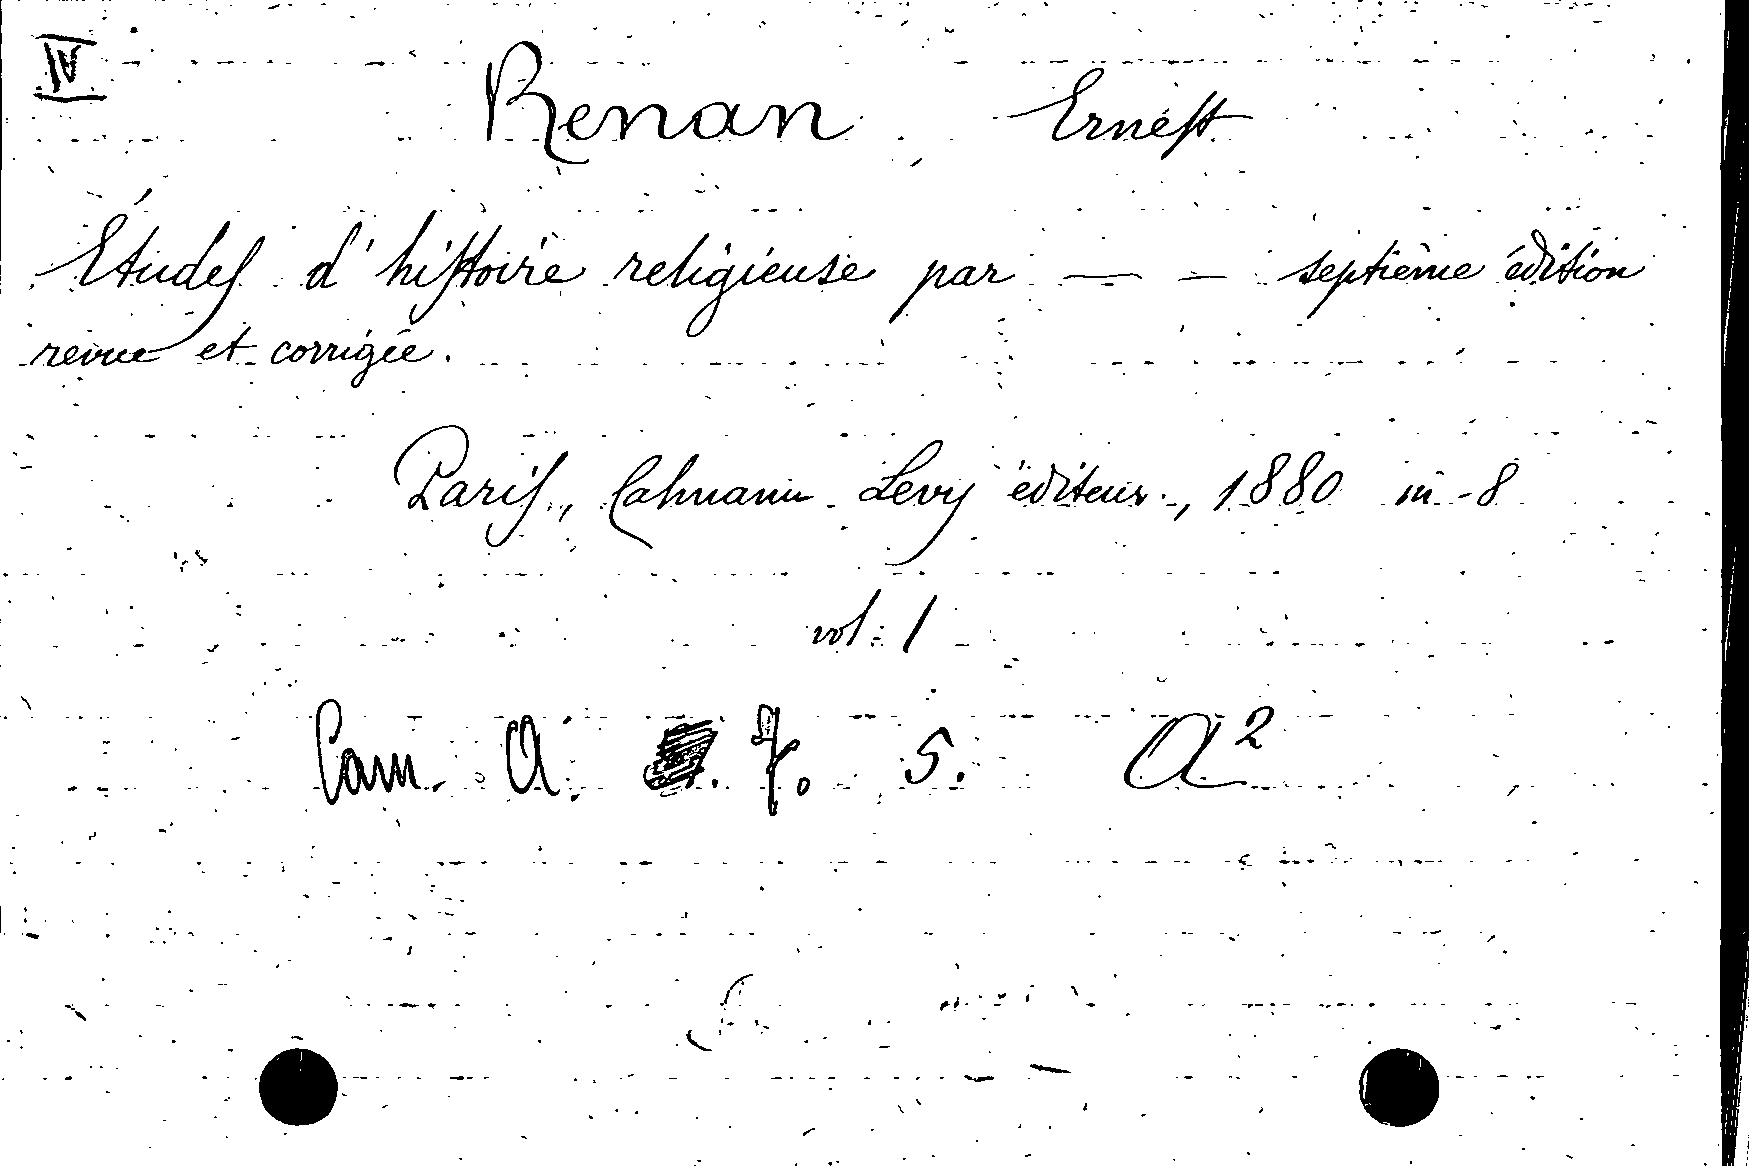 IV
Renan Ernest
Études d'histoire religieuse par — — septième édition
revue et corrigée.
Paris, Calmann Levy éditeur., 1880 in-8
vol. 1
Cam. A. 7. 5. A²